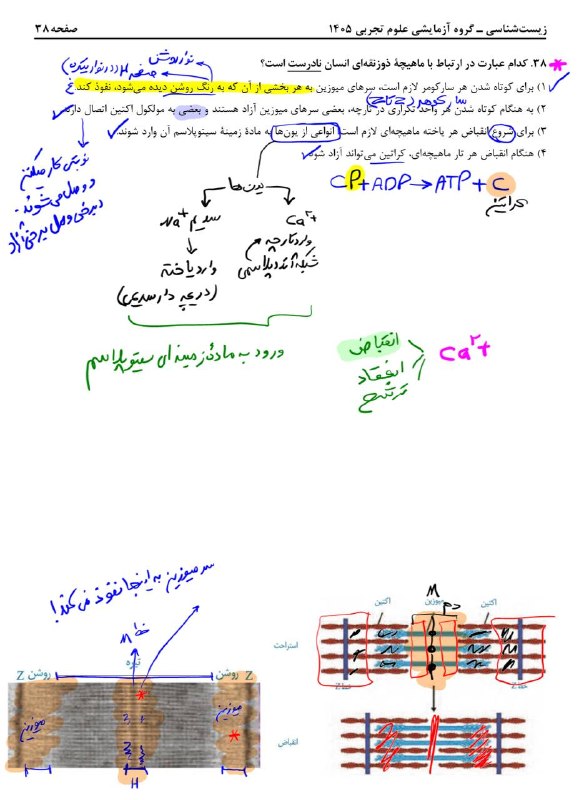 زیست‌شناسی ـ گروه آزمایشی علوم تجربی ۱۴۰۵
صفحه ۳۸
نوار روشن
صفحه M (در نوار تیره)
۳۸. کدام عبارت در ارتباط با ماهیچهٔ ذوزنقه‌ای انسان نادرست است؟
۱) برای کوتاه شدن هر سارکومر لازم است، سرهای میوزین به هر بخشی از آن که به رنگ روشن دیده می‌شود، نفوذ کند. غ
سارکومر
۲) به هنگام کوتاه شدن هر واحد تکراری در تارچه، بعضی سرهای میوزین آزاد هستند و بعضی به مولکول اکتین اتصال دارند.
۳) برای شروع انقباض هر یاخته ماهیچه‌ای لازم است، انواعی از یون‌ها به مادهٔ زمینهٔ سیتوپلاسم آن وارد شوند.
۴) هنگام انقباض هر تار ماهیچه‌ای، کراتین می‌تواند آزاد شود.
CP + ADP → ATP + C
کراتین
نوبتی کار میکنن
و وصل می‌شوند.
برخی وصل برخی آزاد
یون‌ها
سدیم Na+
وارد یاخته
(دریچه دار سدیمی)
Ca2+
وارد تارچه
شبکه آندوپلاسمی
ورود به مادهٔ زمینه‌ای سیتوپلاسم
انقباض
انعقاد
ترشح
Ca2+
سر میوزین به اینجا نفوذ می‌کند!
خط M
تیره
Z روشن
روشن Z
میوزین
میوزین
H
M
اکتین
میوزین
اکتین
استراحت
خط Z
خط Z
انقباض